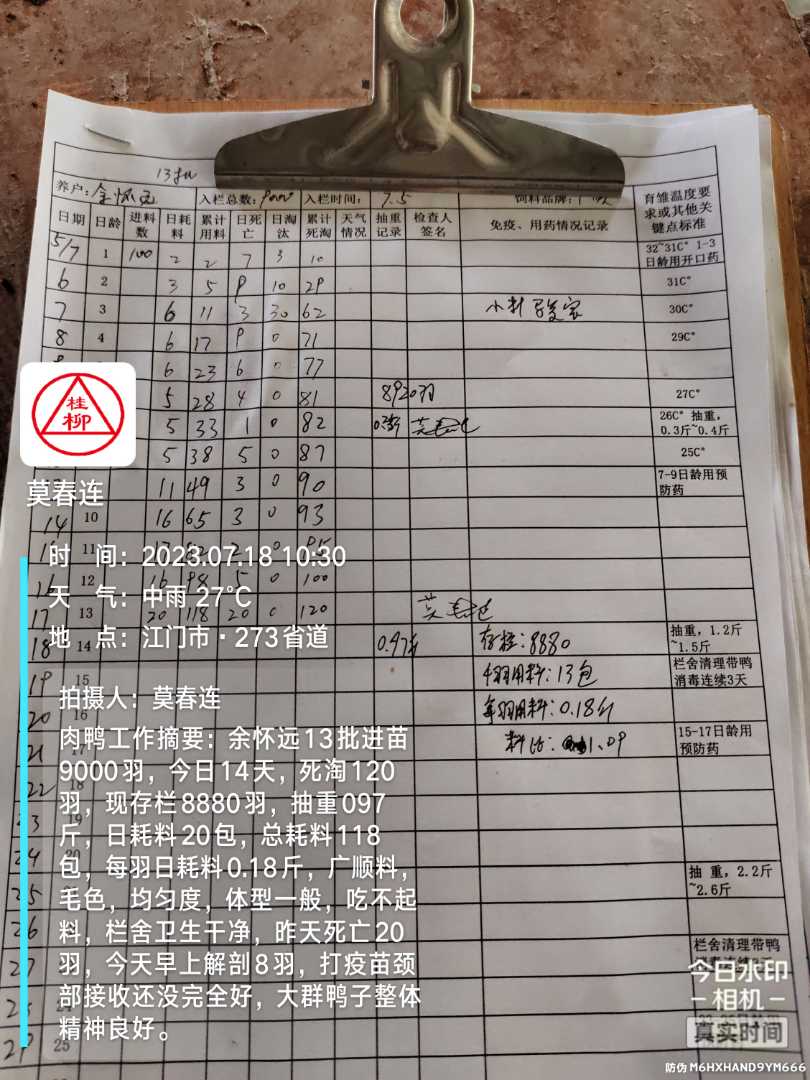 13批
养户：余怀远 入栏总数：9000 入栏时间：7.5 饲料品牌：
日期 日龄 进料数 日耗料 累计用料 日死亡 日淘汰 累计死淘 天气情况 抽重记录 检查人签名 免疫、用药情况记录 育雏温度要求或其他关键点标准
5/7 1 100 2 2 7 3 10 32~31C° 1-3日龄用开口药
6 2 3 5 9 10 29 31C°
7 3 6 11 3 30 62 小针 30C°
8 4 6 17 9 0 71 29C°
6 23 6 0 77
5 28 4 0 81 8920羽 27C°
5 33 1 0 82 26C° 抽重，0.3斤~0.4斤
5 38 5 0 87 25C°
11 49 3 0 90 7-9日龄用预防药
14 10 16 65 3 0 93
11 2 0 95
16 12 16 98 5 0 100
17 13 20 118 20 0 120
18 14 0.97斤 存栏：8880 抽重，1.2斤~1.5斤
19 15 4羽用料：13包 栏舍清理带鸭消毒连续3天
20 16 每羽用料：0.18斤
21 17 料比：1.09 15-17日龄用预防药
22 18
23 19
24 20
25 抽 重，2.2斤~2.6斤
26
27 栏舍清理带鸭
28
29 25
桂柳
莫春连
时 间：2023.07.18 10:30
天 气：中雨 27℃
地 点：江门市·273省道
拍摄人：莫春连
肉鸭工作摘要：余怀远13批进苗
9000羽，今日14天，死淘120
羽，现存栏8880羽，抽重097
斤，日耗料20包，总耗料118
包，每羽日耗料0.18斤，广顺料，
毛色，均匀度，体型一般，吃不起
料，栏舍卫生干净，昨天死亡20
羽，今天早上解剖8羽，打疫苗颈
部接收还没完全好，大群鸭子整体
精神良好。
今日水印
相机
真实时间
防伪 M6HXHAND9YM666